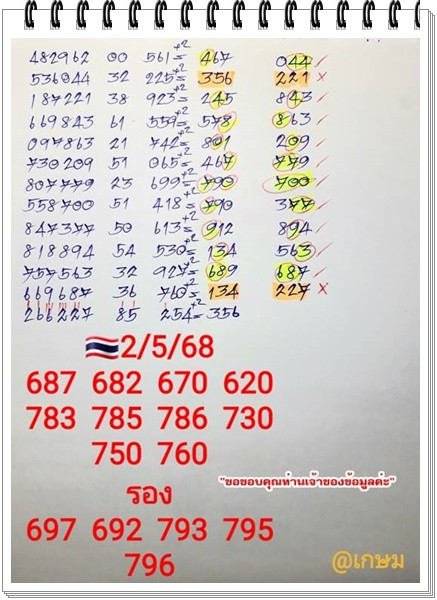 482962 00 561=+2 467 044 ✓
536044 32 225=+2 356 221 ×
187221 38 923=+2 245 843 ✓
669843 61 559=+2 578 863 ✓
097863 21 742=+2 801 209 ✓
730209 51 065=+2 467 779 ✓
807779 23 699=+2 790 700 ✓
558700 51 418=+2 790 377 ✓
847377 50 613=+2 912 894 ✓
818894 54 530=+2 134 563 ✓
757563 32 927=+2 689 687 ✓
669687 36 760=+2 134 227 ×
266227 85 254=+2 356
🇹🇭2/5/68
687 682 670 620
783 785 786 730
750 760
"ขอขอบคุณท่านเจ้าของข้อมูลค่ะ"
รอง
697 692 793 795
796
@เกษม